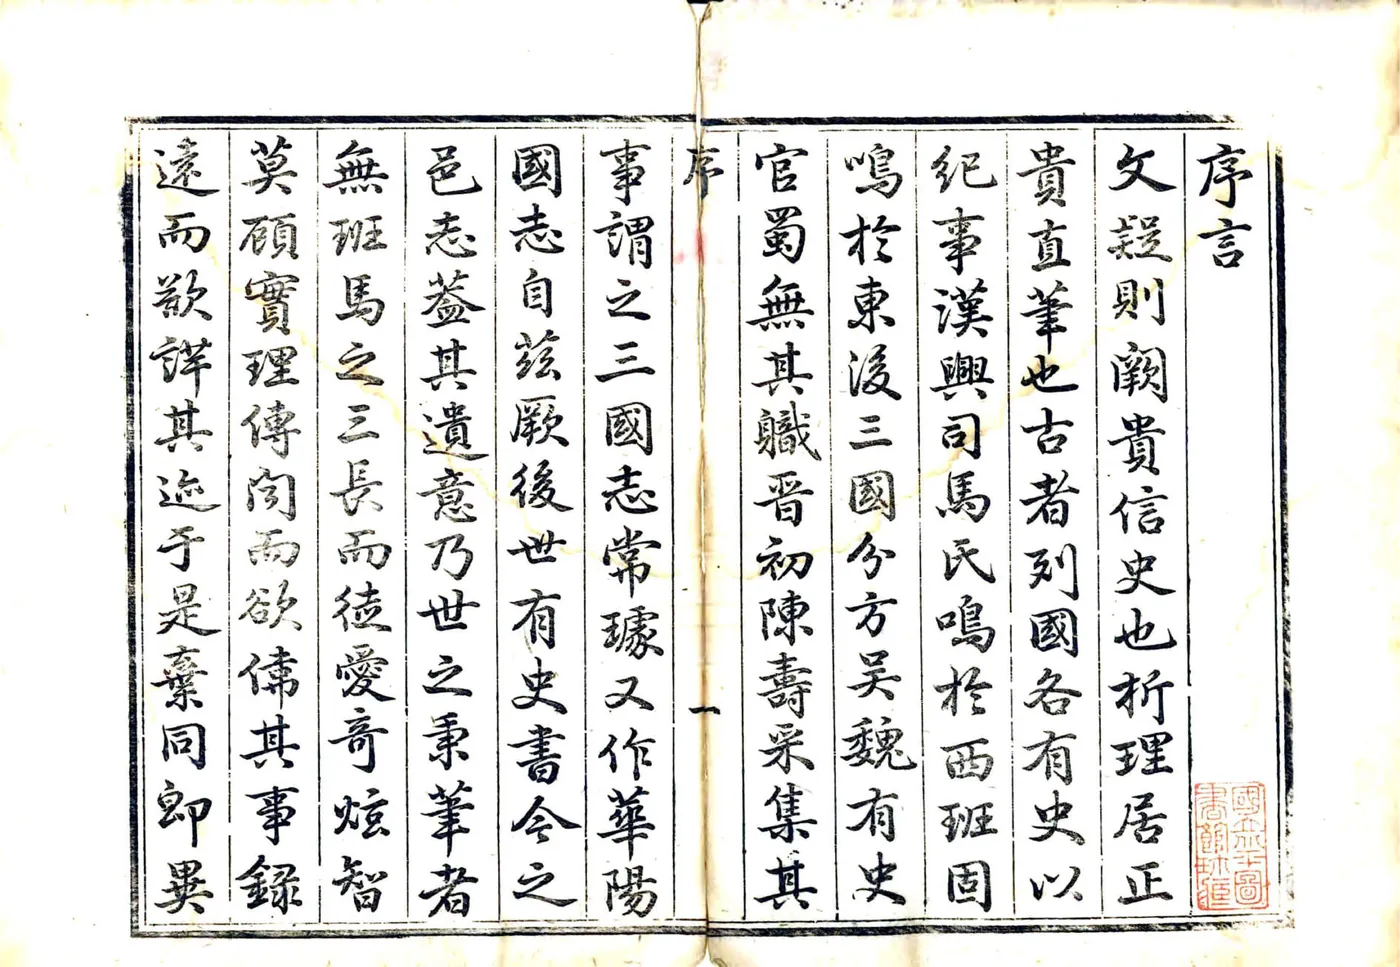 序言
文疑則闕貴信史也析理居正
貴直筆也古者列國各有史以
紀事漢興司馬氏鳴於西班固
鳴於東後三國分方吴魏有史
官蜀無其職晋初陳壽采集其
序
一
事謂之三國志常璩又作華陽
國志自茲厥後世有史書今之
邑志蓋其遺意乃世之秉筆者
無班馬之三長而徒愛奇炫智
莫顧實理傳闻而欲偹其事錄
遠而欲詳其迹于是棄同即異